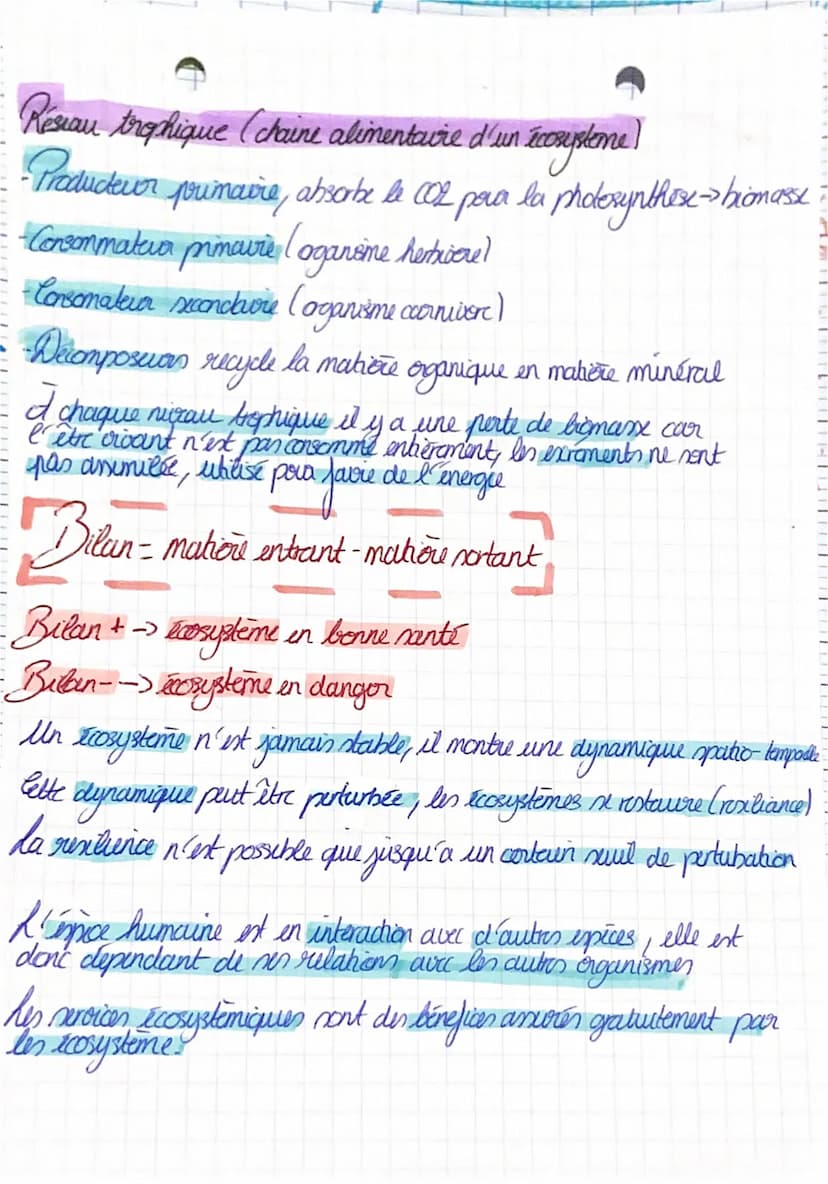 Réseau trophique (chaine alimentaire d'un écosystème)
- Producteur primaire, absorbe le CO2 pour la photosynthèse -> biomasse
- Consommateur primaire (oganisme herbivore)
- Consomateur secondaire (organisme carnivore)
- Décomposeurs recycle la matière organique en matière minéral
à chaque niveau trophique il y a une perte de biomasse car
l'être vivant n'est pas consommé entièrement, les excréments ne sont
pas assimilée, utilisé pour faire de l'énergie
Bilan = matière entrant - matière sortant
Bilan + -> écosystème en bonne santé
Bilan - -> écosystème en danger
Un écosystème n'est jamais stable, il montre une dynamique spatio-temporelle
Cette dynamique peut être perturbée, les écosystèmes se restaure (resiliance)
La resilience n'est possible que jusqu'a un certain seuil de pertubation
L'éspice humaine est en interaction avec d'autres espèces, elle est
donc dépendant de ses relations avec les autres organismes
Les services écosystèmiques sont des bénéfices assurés gratuitement par
les écosystème.